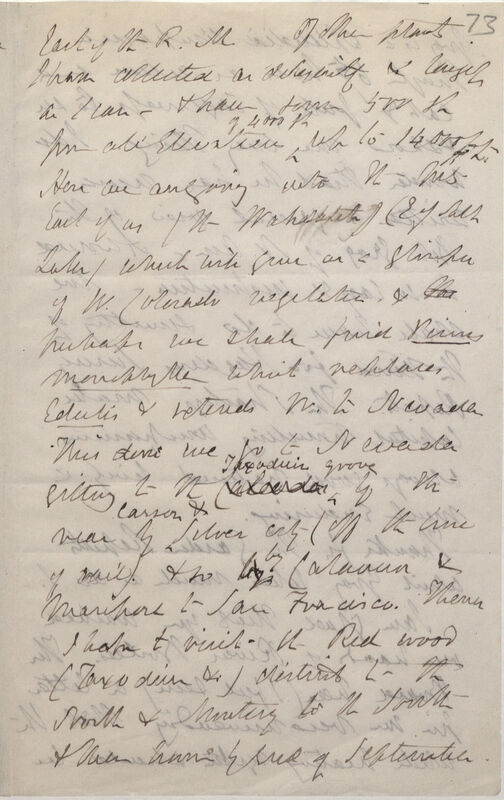 73
East of the R. M. Of other plants
I have collected as diligently & largely
as I can — I have some 500 sp.
from all Elevations of 4000 ft up to 14000 ft.
Here we are going into the Mts
East of us (the Wahsatch) (E of Salt
Lake) which will give us a glimpse
of W. Colorado vegetation, &
perhaps we shall find Pinus
monophylla which replaces
Edulis & extends W. to Nevada
This done we go to Nevada
getting to the Taxodium grove of the
near Carson & Silver city (off the line
of rail) & so by Calaveras &
Mariposa to San Francisco. Thence
I hope to visit the Red wood
(Taxodium S.) district to the
North & Monterey to the South
& then home by end of September.